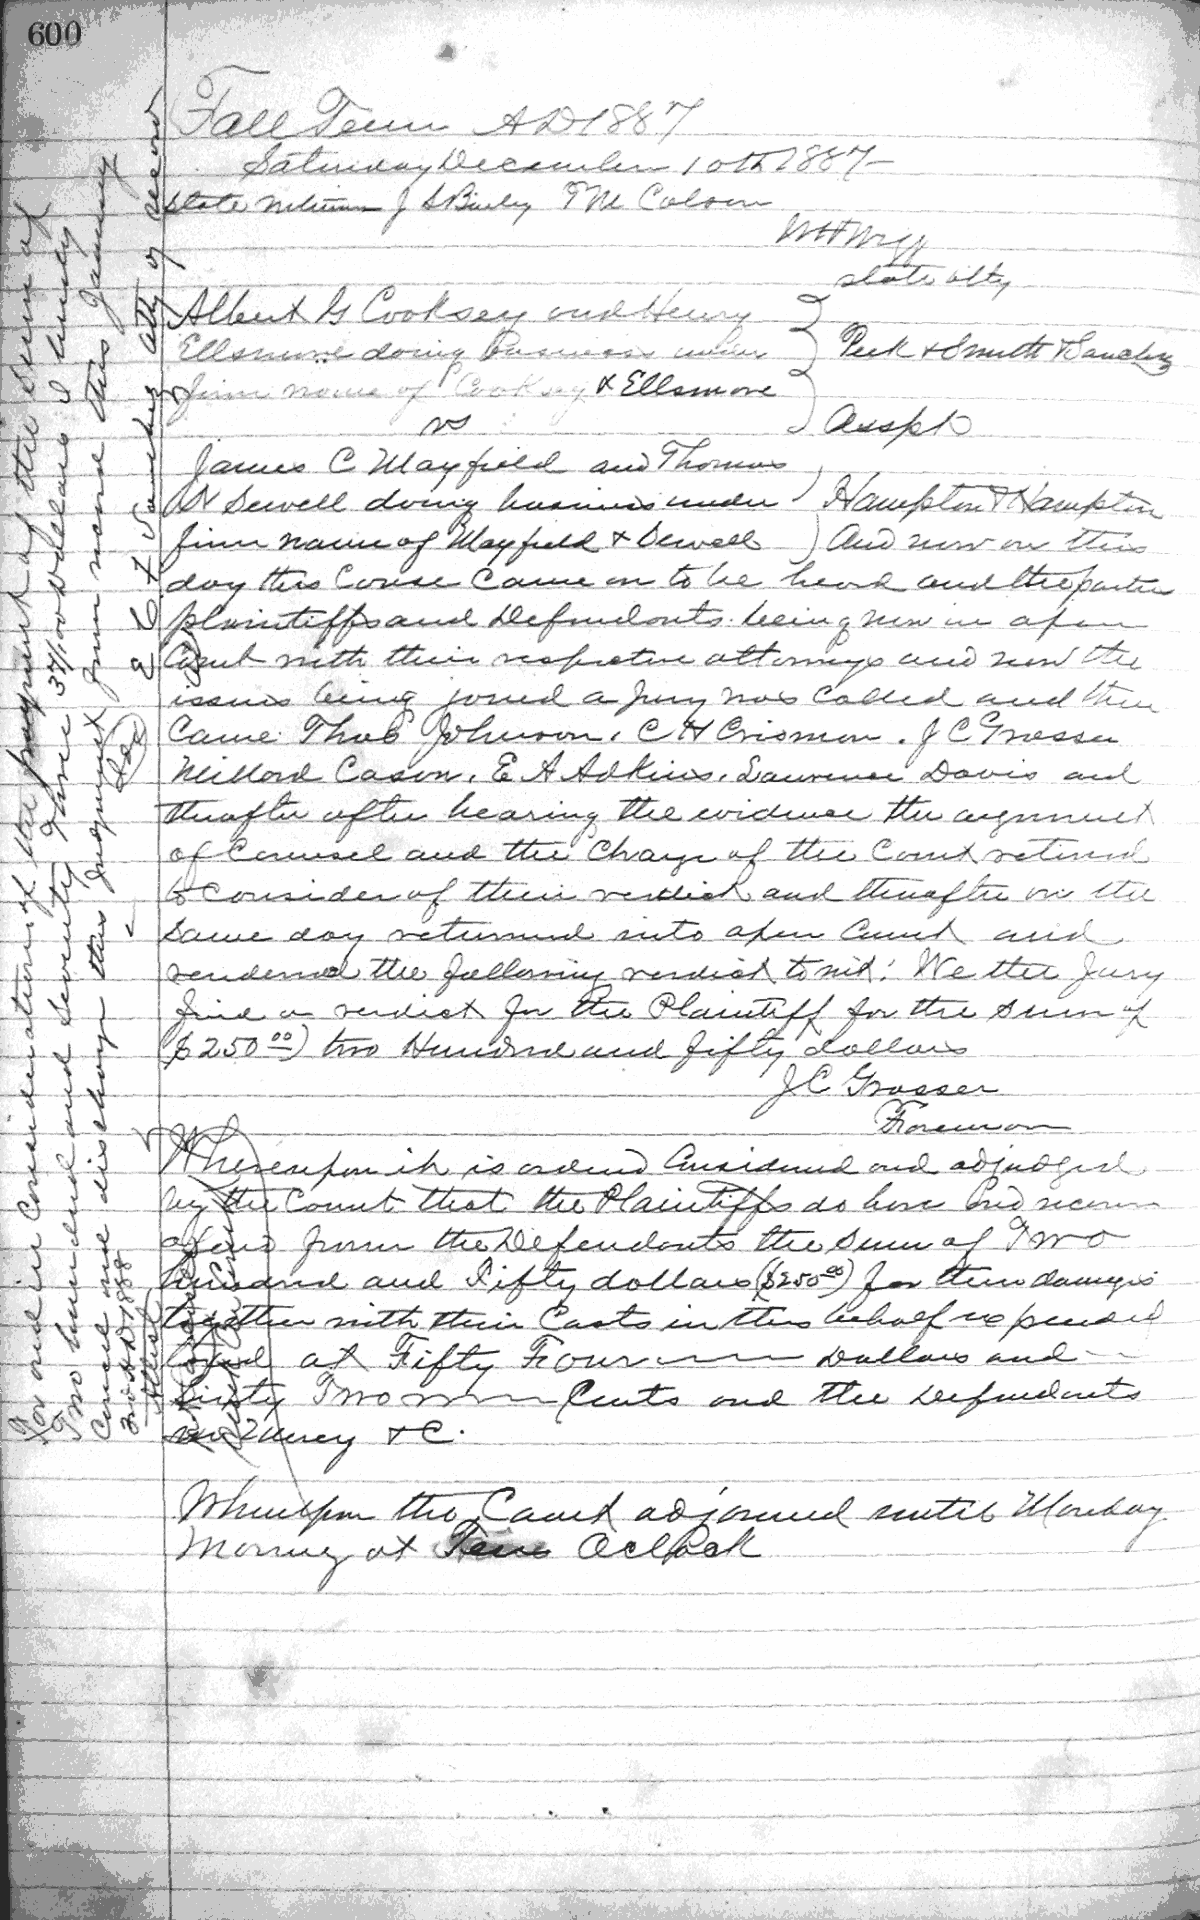 600
Fall Term A D 1887
Saturday December 10th 1887
State J S T M
state atty
Albert G Cooksey and Henry
Ellsmore doing business under
firm name of Cooksey & Ellsmore
Peek & Smith & Sanchez
vs
Asspt
James C Mayfield and Thomas
N Sewell doing business under
Hampton & Hampton
firm name of Mayfield & Sewell
And now on this
day this Couse Came on to be heard and the parties
plaintiffs and Defendants being now in open
Court with their respective attorneys and now the
issues being joined a jury was Called and then
Came Thos Johnson, C H Crismon. J C Grosser
Millord Cason. E A Adkins. Lawrence Davis and
theafter after hearing the evidence the argument
of Counsel and the Charge of the Court retired
to consider of their verdict and theafter on the
same day returned into open Court and
rendered the following verdict to wit: We the Jury
find a verdict for the Plaintiff for the sum of
($250 00) two Hundred and fifty dollars
J C Grosser
Foreman
Whereupon it is ordered Considered and adjudged
by the Court that the Plaintiffs do have and recover
of and from the Defendants the sum of Two
hundred and Fifty dollars ($250 00) for their damages
together with their Costs in this behalf expended
taxed at Fifty Four Dollars and
Two Cents and the Defendants
in Mercy & C.
Whereupon the Court adjourned until Monday
Morning at Oclock
For and in Consideration of the payment of the sum of
Two hundred and Seventy Three 37/100 dollars I hereby
Cancel and discharge this Judgment from record this January
A D 1888
Attest
atty of record